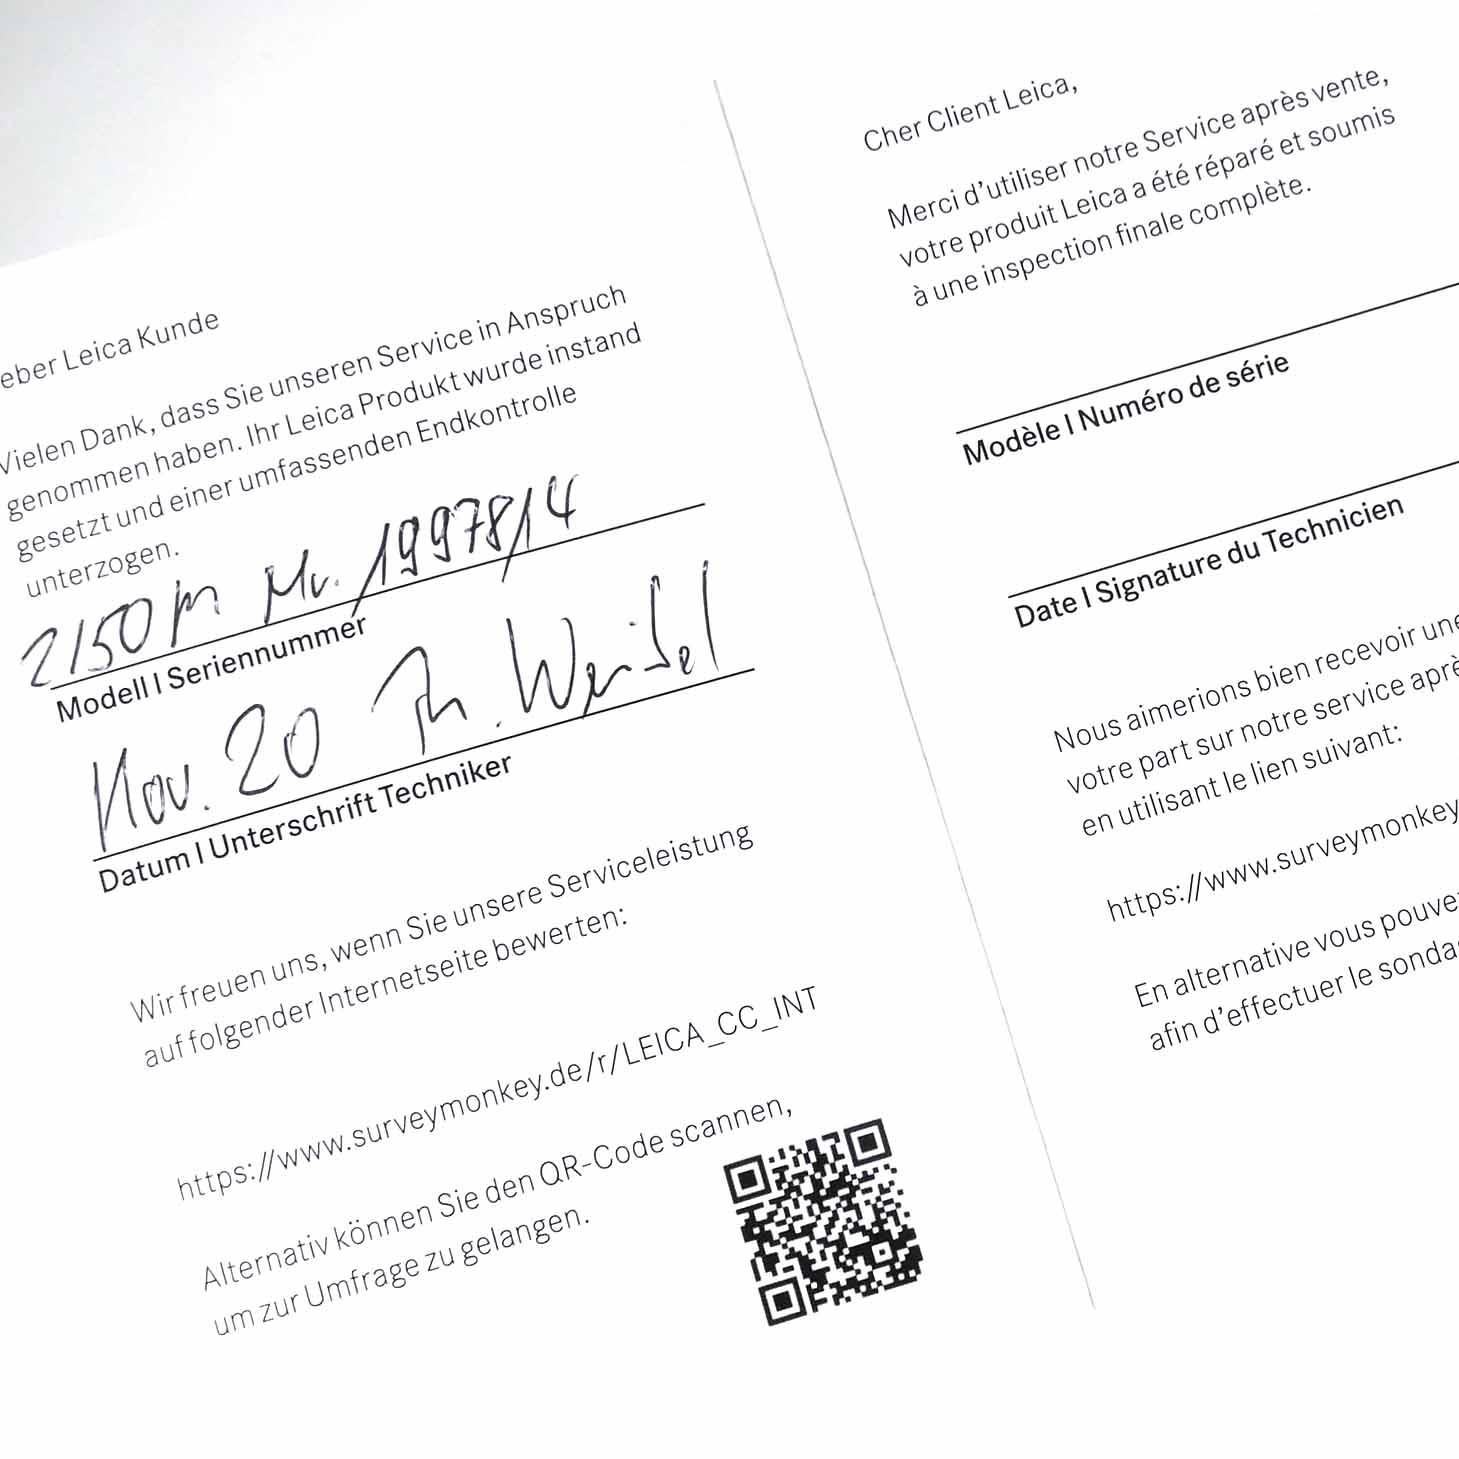 eber Leica Kunde
Vielen Dank, dass Sie unseren Service in Anspruch
genommen haben. Ihr Leica Produkt wurde instand
gesetzt und einer umfassenden Endkontrolle
unterzogen.
2150 m Nr. 1997814
Modell | Seriennummer
Nov. 20 Th. Weisel
Datum | Unterschrift Techniker
Wir freuen uns, wenn Sie unsere Serviceleistung
auf folgender Internetseite bewerten:
https://www.surveymonkey.de/r/LEICA_CC_INT
Alternativ können Sie den QR-Code scannen,
um zur Umfrage zu gelangen.
Cher Client Leica,
Merci d’utiliser notre Service après vente,
votre produit Leica a été réparé et soumis
à une inspection finale complète.
Modèle | Numéro de série
Date | Signature du Technicien
Nous aimerions bien recevoir une
votre part sur notre service aprè
en utilisant le lien suivant:
https://www.surveymonkey
En alternative vous pouve
afin d’effectuer le sonda